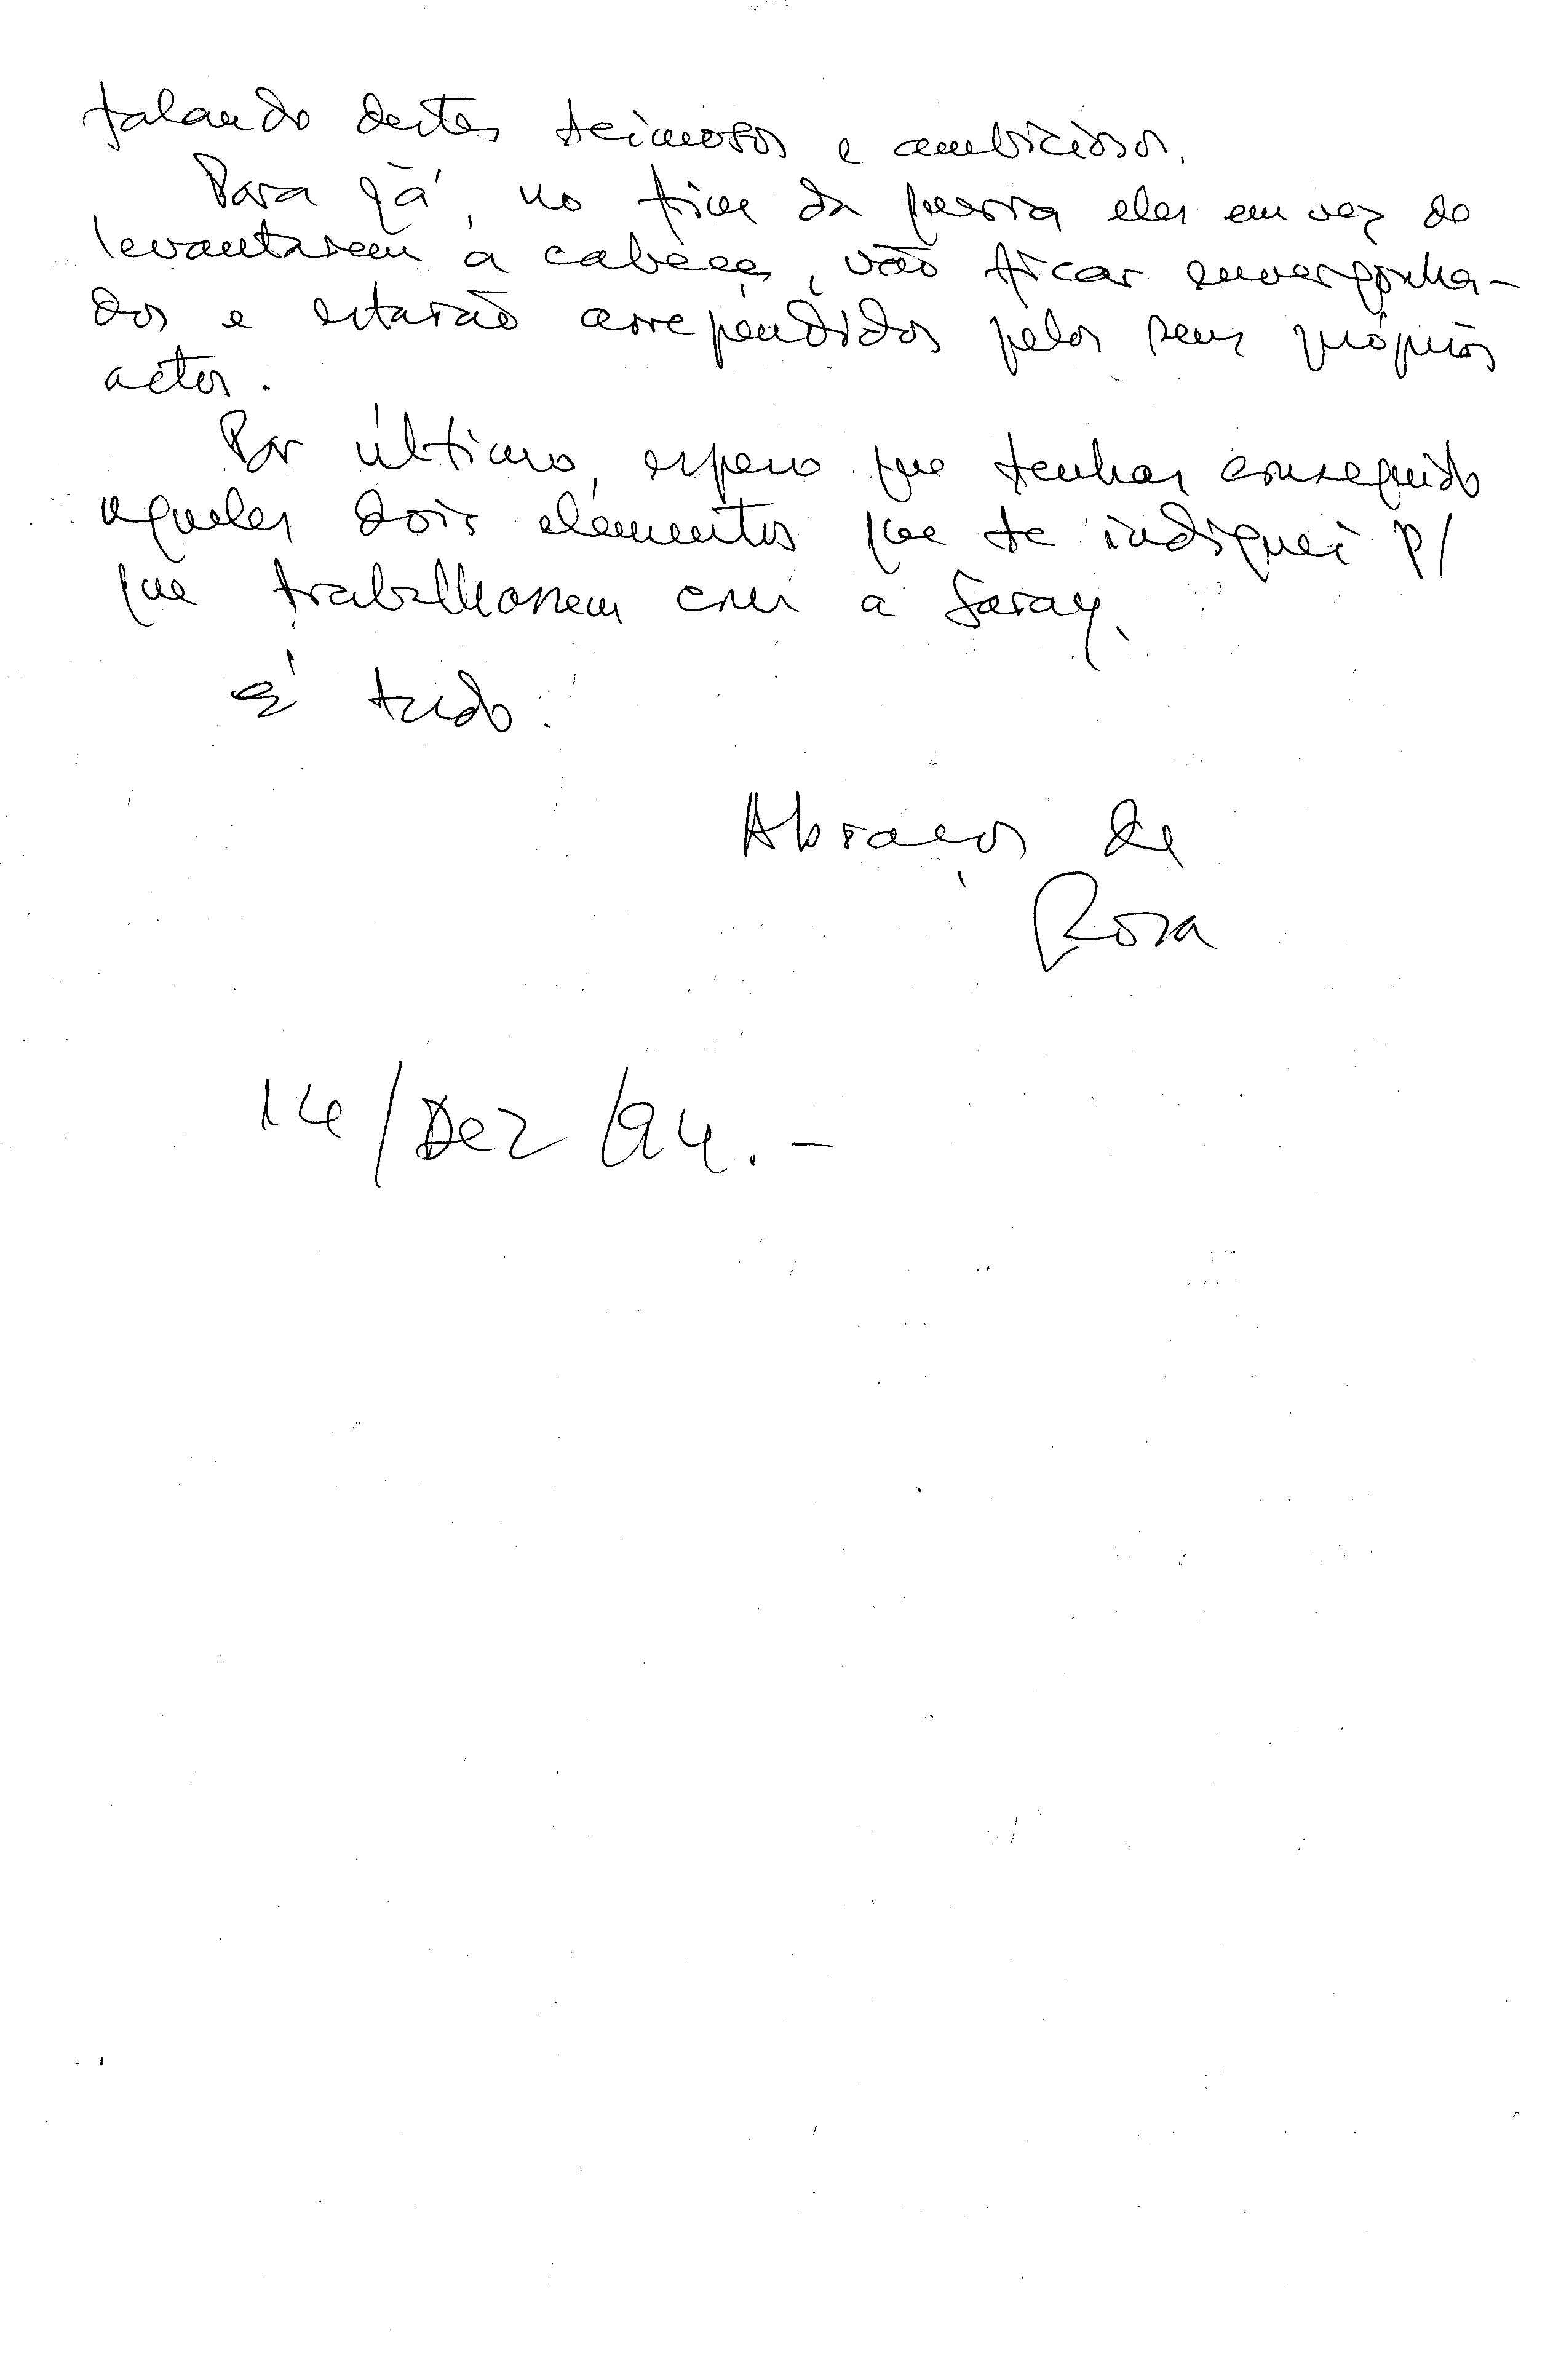 falando destes teimosos e ambiciosos.
Para já, no fim da guerra eles em vez de
levantarem a cabeça, vão ficar envergonha-
dos e estarão arrependidos pelos seus próprios
actos.
Por último, espero que tenhas conseguido
aqueles dois elementos que te indiquei p/
que trabalhassem com a Saray.
É tudo.
Abraços de
Rosa
14/Dez/94.-